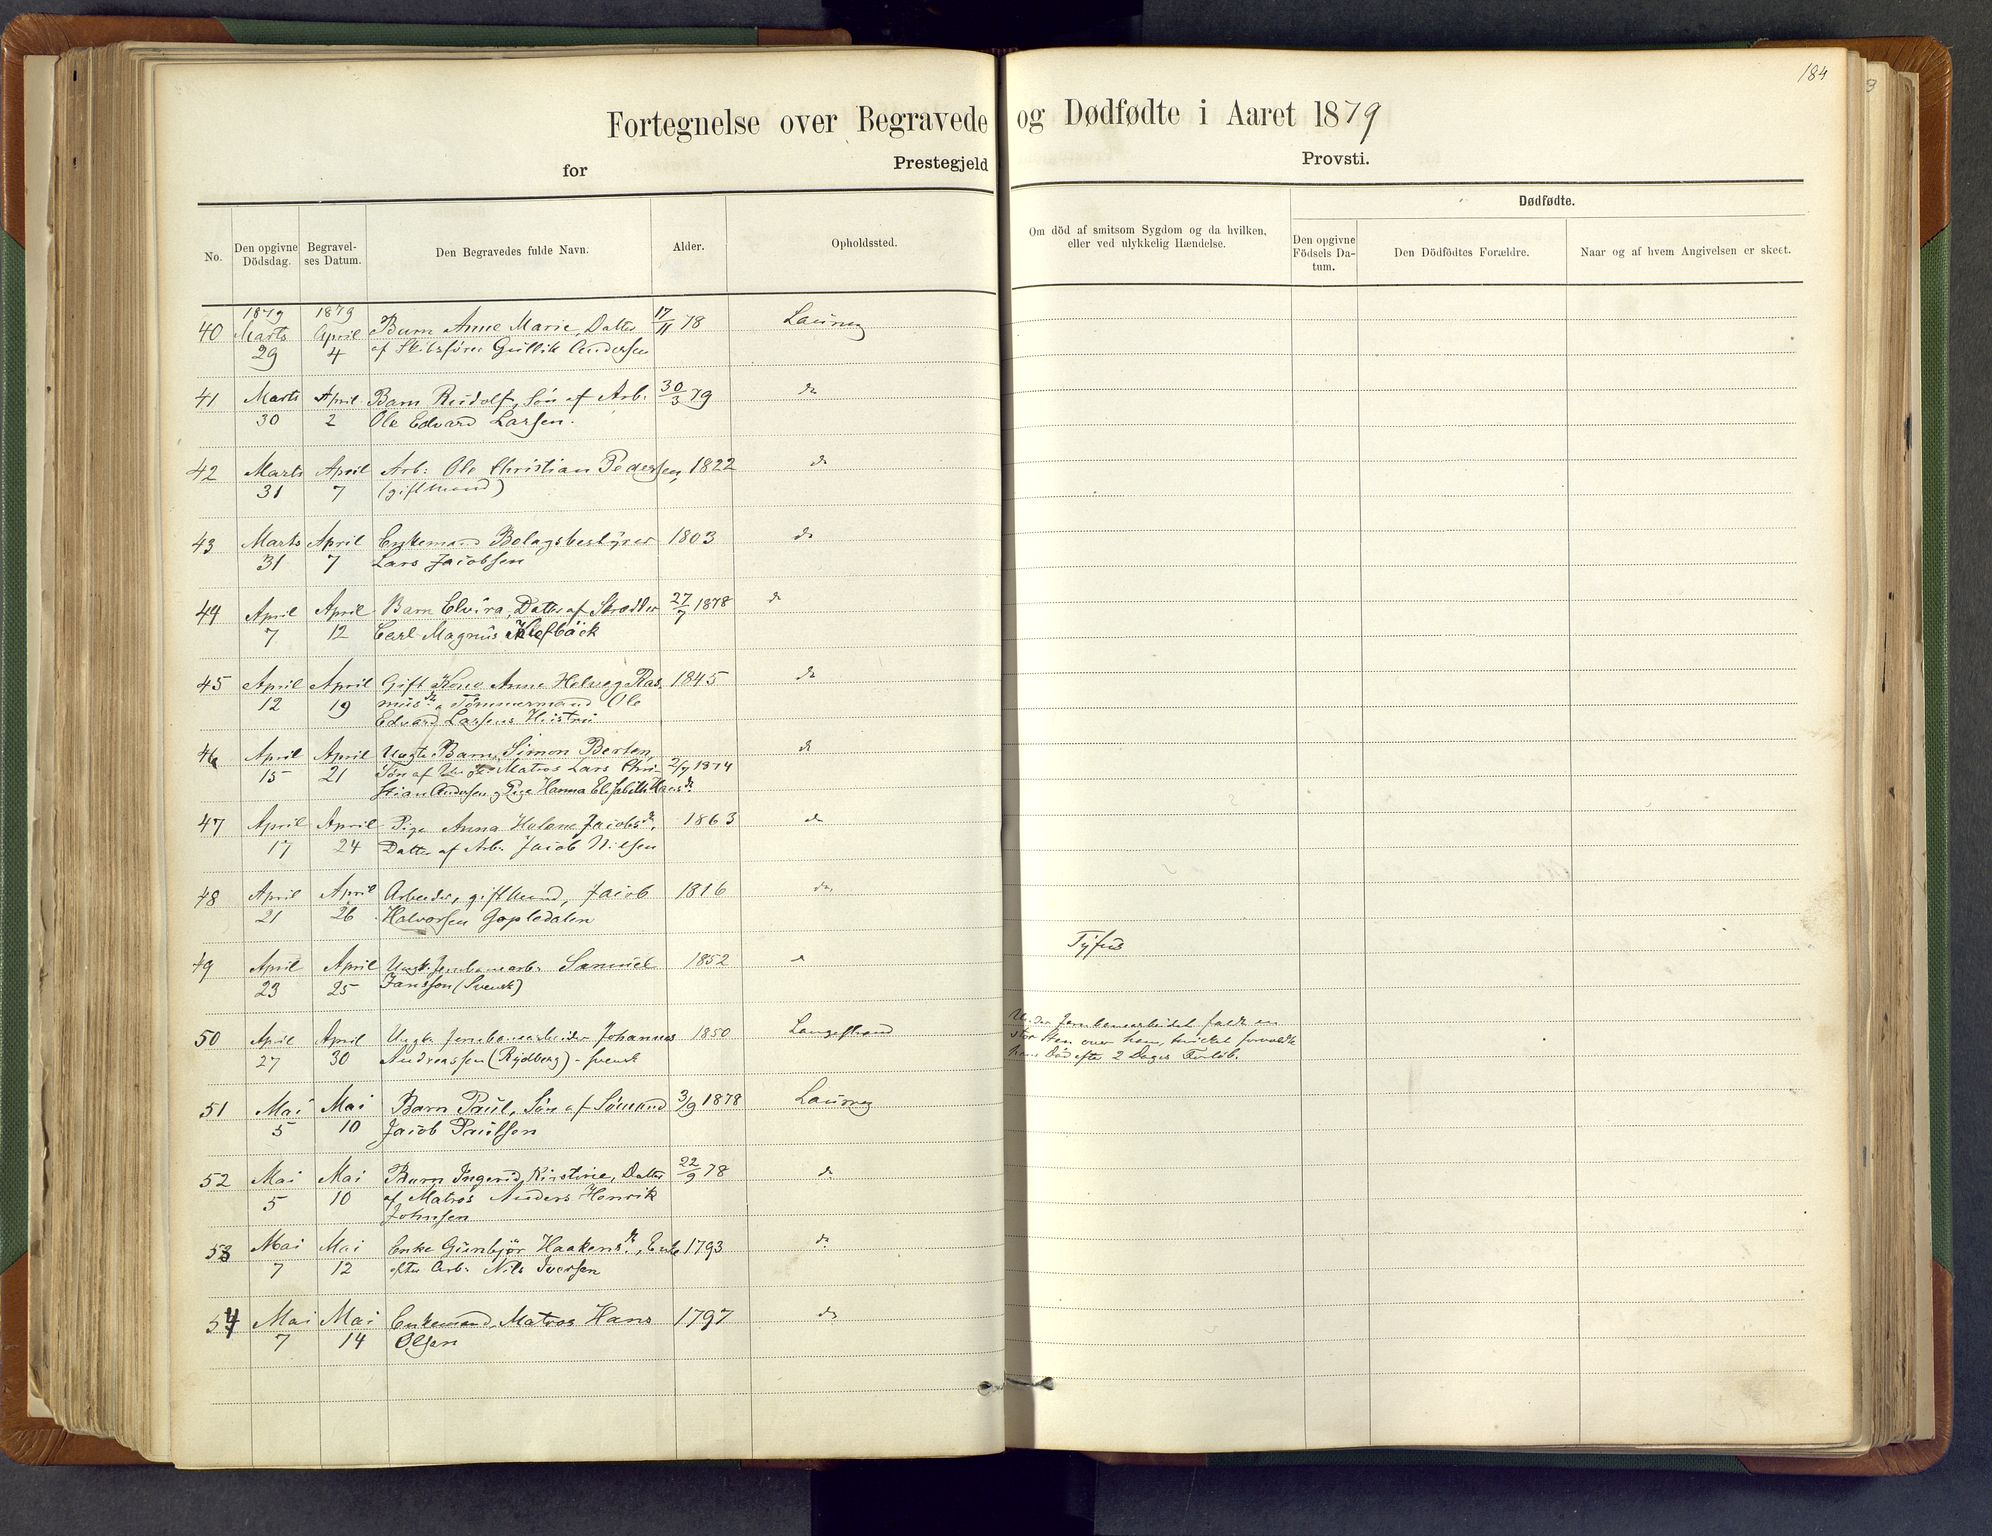 184
Fortegnelse over Begravede og Dødfødte i Aaret 1879
for Prestegjeld Provsti.
No.
Den opgivne Dödsdag.
Begravel- ses Datum.
Den Begravedes fulde Navn.
Alder.
Opholdssted.
Om död af smitsom Sygdom og da hvilken, eller ved ulykkelig Hændelse.
Dødfødte.
Den opgivne Födsels Da- tum.
Den Dödfödtes Forældre.
Naar og af hvem Angivelsen er skeet.
1879 1879
40 Marts April Barn Anne Marie, Datter 17/11 78 Laurvig
29 4 af Skibsfører Gullik Andersen
41 Marts April Barn Rudolf, Søn af Arb. 30/3 79 do
30 2 Ole Edvard Larsen.
42 Marts April Arb: Ole Christian Pedersen, 1822 do
31 7 (gift Mand)
43 Marts April Enkemand Bolagsbestyrer 1803 do
31 7 Lars Jacobsen
44 April April Barn Elvira, Datter af Skrædder 27/7 1878 do
7 12 Carl Magnus Klefbäck
45 April April Gift Kone Anne Helvég Ras 1845 do
12 19 musdr, Tømmermand Ole
Edvard Larsens Hustru
46 April April Uægte Barn, Simon Berten, do
15 21 Søn af Matros Lars Chri- 2/7 1874
stian Andersen og Pige Hanna Elisabeth Hansdr.
47 April April Pige Anna Helene Jacobsdr, 1863 do
17 24 Datter af Arb. Jacob Nilsen
48 April April Arbeider, gift Mand, Jacob 1816 do
21 26 Halvorsen Gopledalen
49 April April Ungk. Jernbanearb. Samuel 1852 do Tyfus
23 25 Jansson (Svensk)
50 April April Ungk. Jernbanearbeider Johannes 1850 Langestrand Under Jernbanearbeidet faldt en
27 30 Andreassen (Rydberg) - svensk stor Sten over ham, hvilket forvoldte
hans Død efter 2 Dages Forløb.
51 Mai Mai Barn Paul, Søn af Sömand 3/9 1878 Laurvig
5 10 Jacob Paulsen
52 Mai Mai Barn Ingerid Kirstine, Datter 22/9 78 do
5 10 af Matros Anders Henrik
Johnsen
53 Mai Mai Enke Gunbjør Haakensdr, Enke 1793 do
7 12 efter Arb. Nils Iversen
54 Mai Mai Enkemand, Matros Hans 1797 do
7 14 Olsen